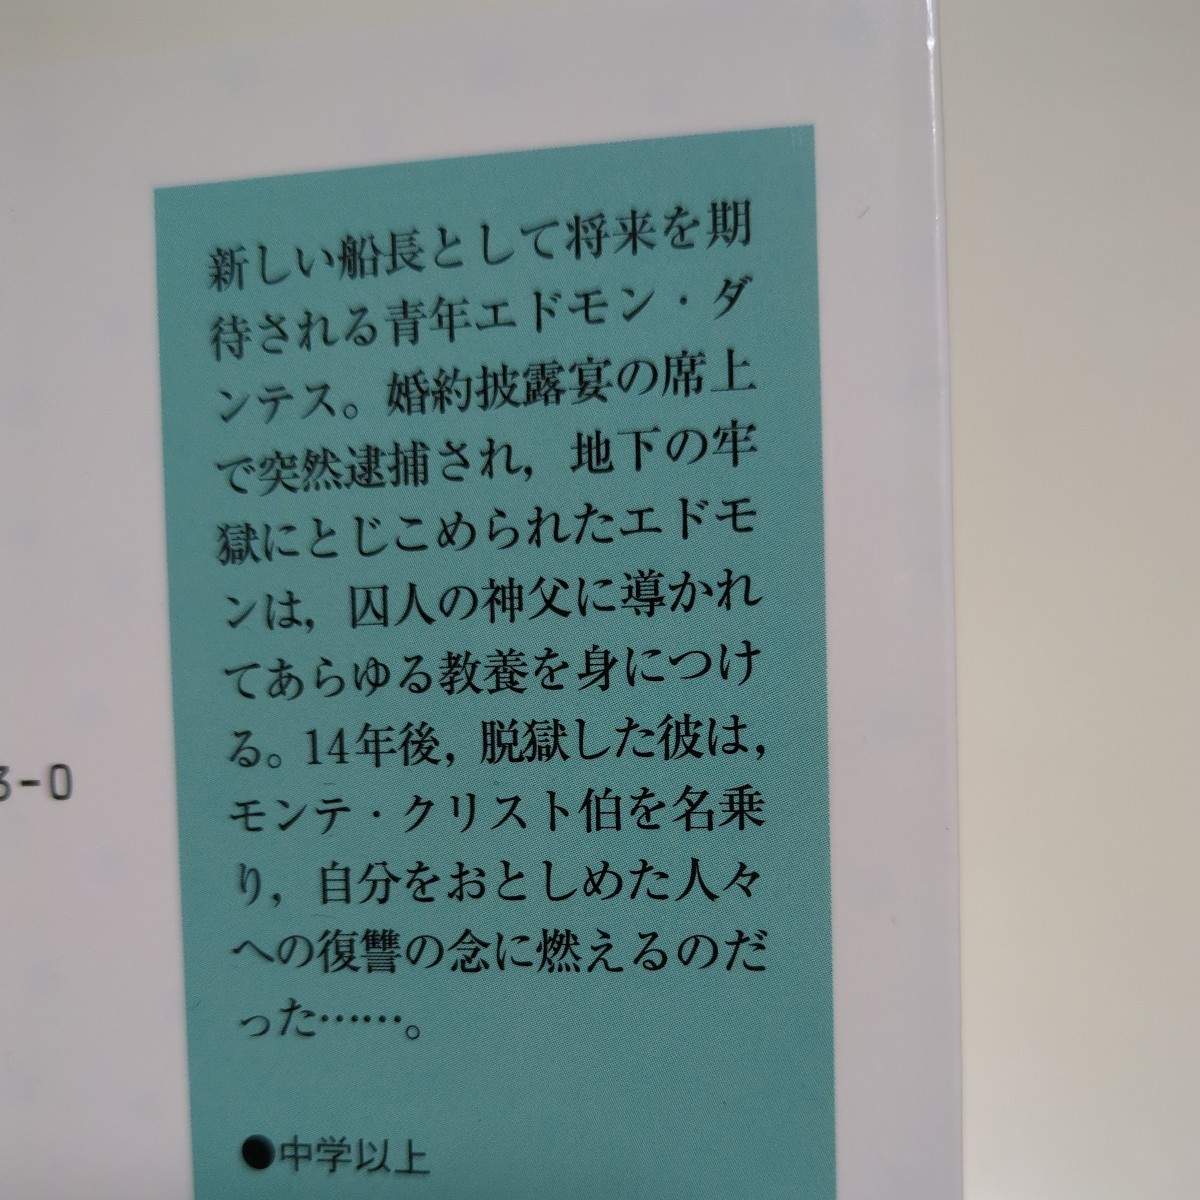 新しい船長として将来を期
待される青年エドモン・ダ
ンテス。婚約披露宴の席上
で突然逮捕され，地下の牢
獄にとじこめられたエドモ
ンは，囚人の神父に導かれ
てあらゆる教養を身につけ
る。14年後，脱獄した彼は，
モンテ・クリスト伯を名乗
り，自分をおとしめた人々
への復讐の念に燃えるのだ
った……。
3-0
●中学以上